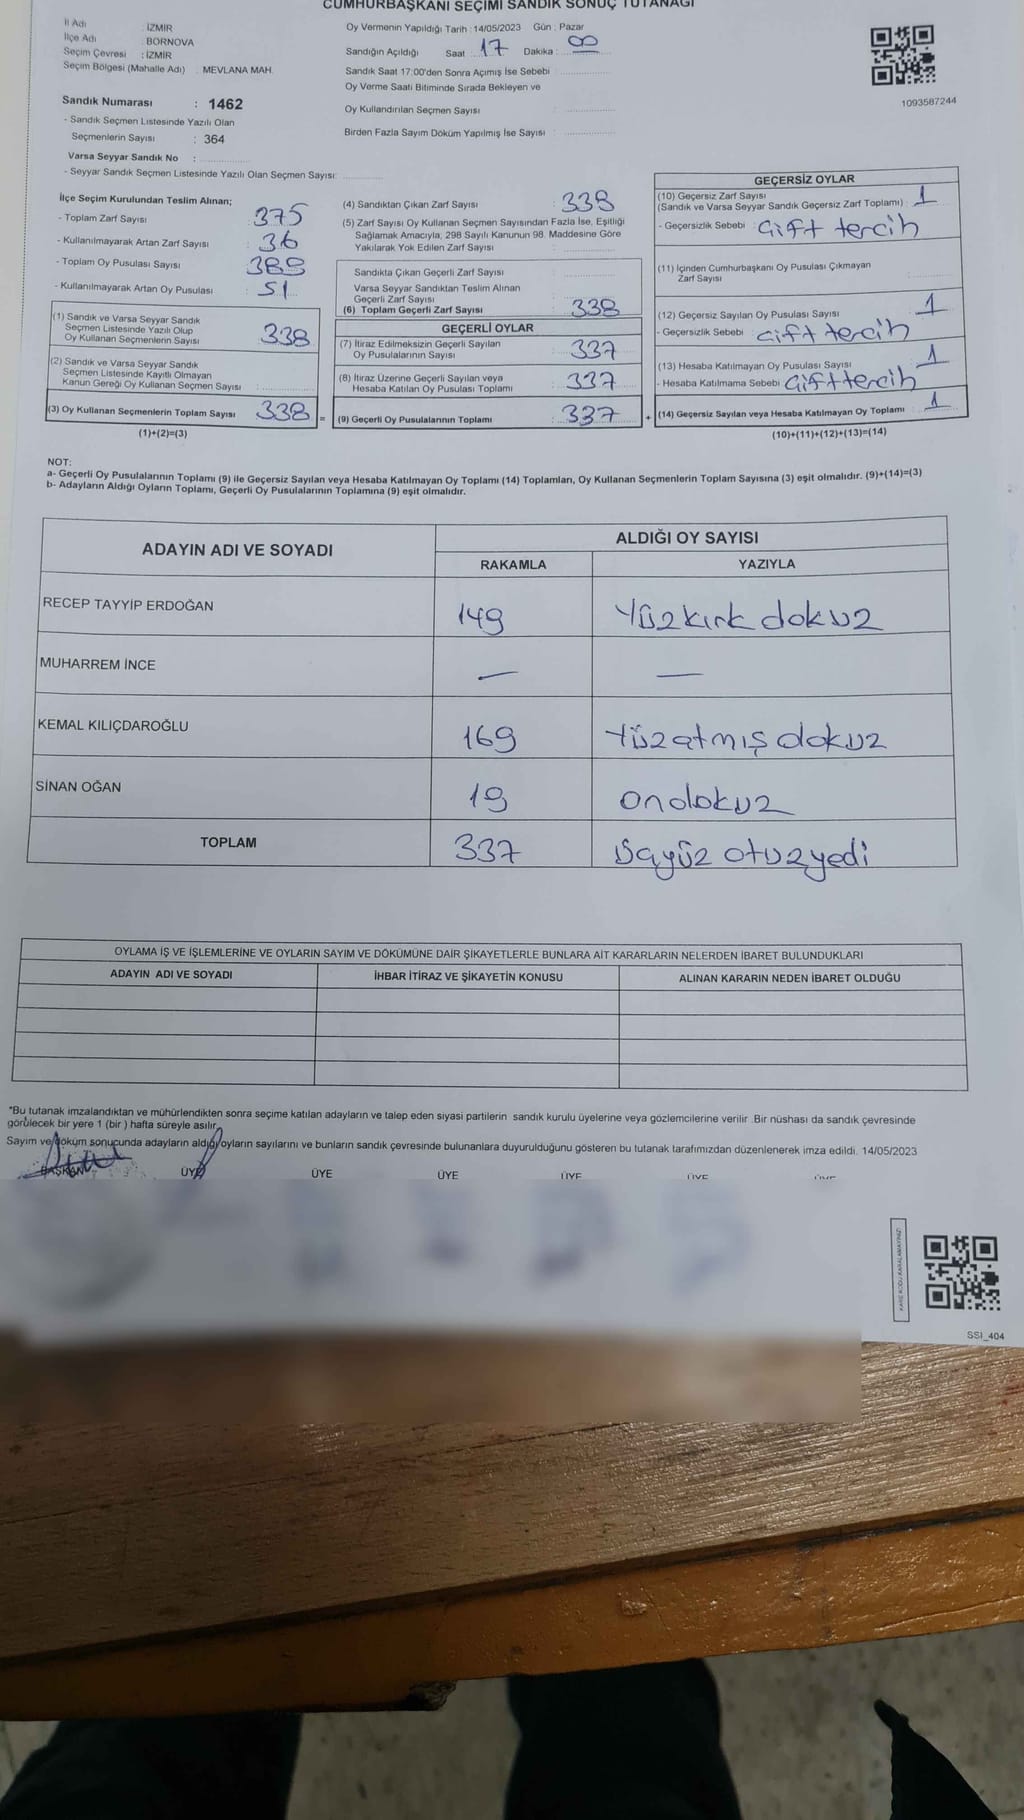 CUMHURBAŞKANI SEÇİMİ SANDIK SONUÇ TUTANAĞI
İl Adı : İZMİR
İlçe Adı : BORNOVA
Seçim Çevresi : İZMİR
Seçim Bölgesi (Mahalle Adı) : MEVLANA MAH.
Sandık Numarası : 1462
- Sandık Seçmen Listesinde Yazılı Olan
Seçmenlerin Sayısı : 364
Varsa Seyyar Sandık No :
- Seyyar Sandık Seçmen Listesinde Yazılı Olan Seçmen Sayısı:
Oy Vermenin Yapıldığı Tarih : 14/05/2023 Gün : Pazar
Sandığın Açıldığı Saat : 17 Dakika : 00
Sandık Saat 17:00'den Sonra Açımış İse Sebebi :
Oy Verme Saati Bitiminde Sırada Bekleyen ve
Oy Kullandırılan Seçmen Sayısı :
Birden Fazla Sayım Döküm Yapılmış İse Sayısı :
1093587244
İlçe Seçim Kurulundan Teslim Alınan;
- Toplam Zarf Sayısı : 375
- Kullanılmayarak Artan Zarf Sayısı : 36
- Toplam Oy Pusulası Sayısı : 389
- Kullanılmayarak Artan Oy Pusulası : 51
(1) Sandık ve Varsa Seyyar Sandık
Seçmen Listesinde Yazılı Olup
Oy Kullanan Seçmenlerin Sayısı : 338
(2) Sandık ve Varsa Seyyar Sandık
Seçmen Listesinde Kayıtlı Olmayan
Kanun Gereği Oy Kullanan Seçmen Sayısı :
(3) Oy Kullanan Seçmenlerin Toplam Sayısı : 338 =
(1)+(2)=(3)
(4) Sandıktan Çıkan Zarf Sayısı : 338
(5) Zarf Sayısı Oy Kullanan Seçmen Sayısından Fazla İse, Eşitliği
Sağlamak Amacıyla, 298 Sayılı Kanunun 98. Maddesine Göre
Yakılarak Yok Edilen Zarf Sayısı :
Sandıkta Çıkan Geçerli Zarf Sayısı :
Varsa Seyyar Sandıktan Teslim Alınan
Geçerli Zarf Sayısı :
(6) Toplam Geçerli Zarf Sayısı : 338
GEÇERLİ OYLAR
(7) İtiraz Edilmeksizin Geçerli Sayılan
Oy Pusulalarının Sayısı : 337
(8) İtiraz Üzerine Geçerli Sayılan veya
Hesaba Katılan Oy Pusulası Toplamı : 337
(9) Geçerli Oy Pusulalarının Toplamı : 337 +
GEÇERSİZ OYLAR
(10) Geçersiz Zarf Sayısı
(Sandık ve Varsa Seyyar Sandık Geçersiz Zarf Toplamı) : 1
- Geçersizlik Sebebi : çift tercih
(11) İçinden Cumhurbaşkanı Oy Pusulası Çıkmayan
Zarf Sayısı :
(12) Geçersiz Sayılan Oy Pusulası Sayısı : 1
- Geçersizlik Sebebi : çift tercih
(13) Hesaba Katılmayan Oy Pusulası Sayısı : 1
- Hesaba Katılmama Sebebi : çift tercih
(14) Geçersiz Sayılan veya Hesaba Katılmayan Oy Toplamı : 1
(10)+(11)+(12)+(13)=(14)
NOT:
a- Geçerli Oy Pusulalarının Toplamı (9) ile Geçersiz Sayılan veya Hesaba Katılmayan Oy Toplamı (14) Toplamları, Oy Kullanan Seçmenlerin Toplam Sayısına (3) eşit olmalıdır. (9)+(14)=(3)
b- Adayların Aldığı Oyların Toplamı, Geçerli Oy Pusulalarının Toplamına (9) eşit olmalıdır.
ADAYIN ADI VE SOYADI ALDIĞI OY SAYISI
RAKAMLA YAZIYLA
RECEP TAYYİP ERDOĞAN 149 Yüzkırk dokuz
MUHARREM İNCE — —
KEMAL KILIÇDAROĞLU 169 Yüzatmış dokuz
SİNAN OĞAN 19 ondokuz
TOPLAM 337 üçyüz otuzyedi
OYLAMA İŞ VE İŞLEMLERİNE VE OYLARIN SAYIM VE DÖKÜMÜNE DAİR ŞİKAYETLERLE BUNLARA AİT KARARLARIN NELERDEN İBARET BULUNDUKLARI
ADAYIN ADI VE SOYADI İHBAR İTİRAZ VE ŞİKAYETİN KONUSU ALINAN KARARIN NEDEN İBARET OLDUĞU
"Bu tutanak imzalandıktan ve mühürlendikten sonra seçime katılan adayların ve talep eden siyasi partilerin sandık kurulu üyelerine veya gözlemcilerine verilir. Bir nüshası da sandık çevresinde
görülecek bir yere 1 (bir ) hafta süreyle asılır.
Sayım ve döküm sonucunda adayların aldığı oyların sayılarını ve bunların sandık çevresinde bulunanlara duyurulduğunu gösteren bu tutanak tarafımızdan düzenlenerek imza edildi. 14/05/2023
BAŞKAN ÜYE ÜYE ÜYE ÜYE ÜYE ÜYE
KARE KODU KARALAMAYINIZ!
SSI_404